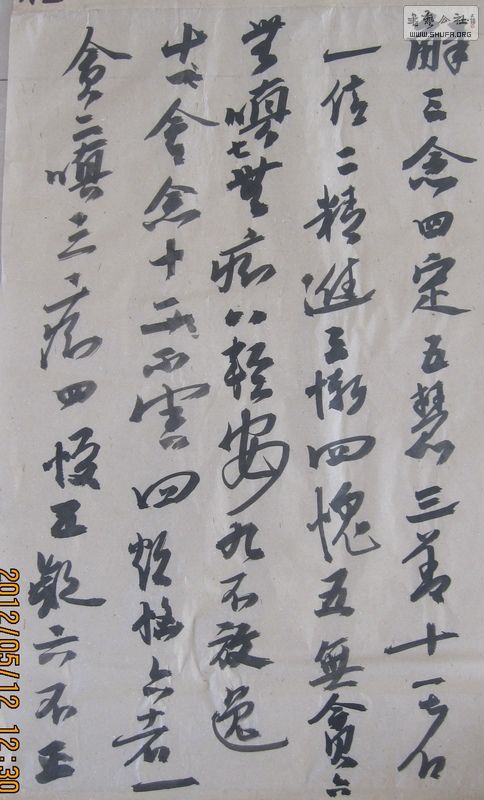 解三念四定五慧三善十一者
一信二精進三慚四愧五無貪六
無嗔七無痴八輕安九不放逸
十舍念十不害四煩惱六者一
貪二嗔三痴四慢五疑六不正
WWW.SHUFA.ORG
2012/05/12 12:30